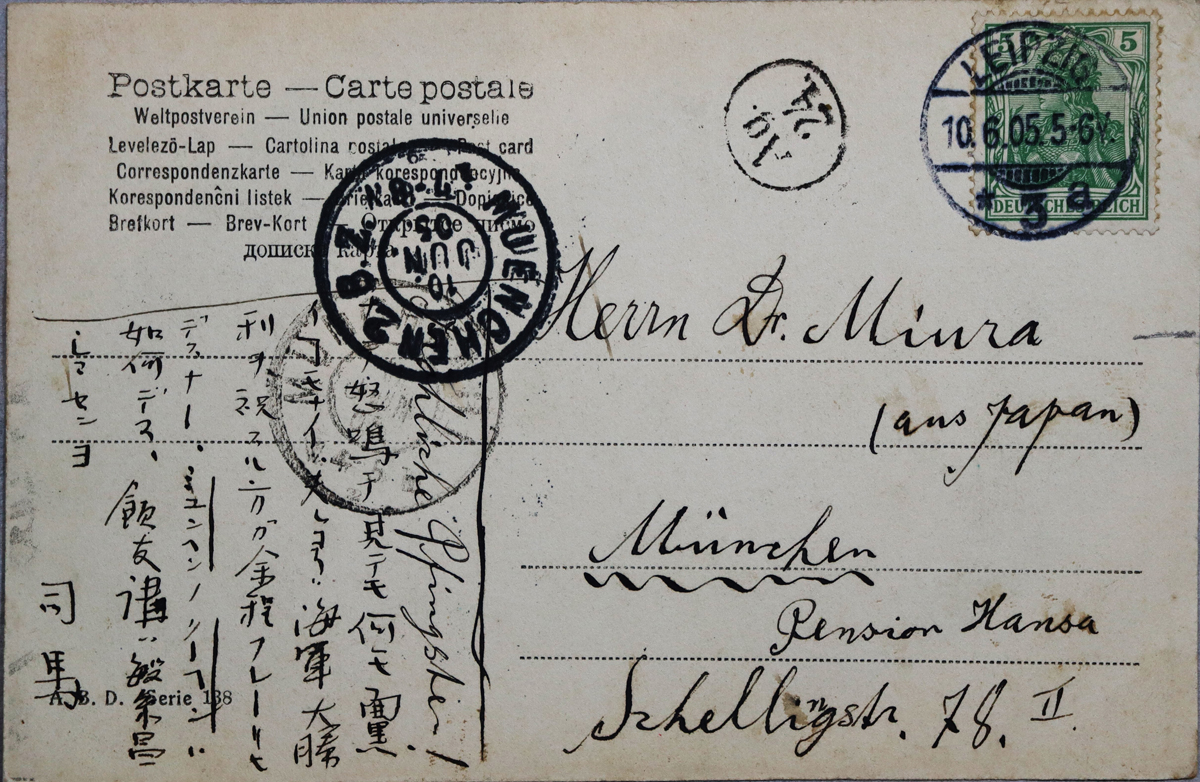 Postkarte — Carte postale
Weltpostverein — Union postale universelle
Levelezö-Lap — Cartolina postale — Post card
Correspondenzkarte — Karta korespondencyjna
Korespondenční listek —
Brefkort — Brev-Kort — Открытое письмо
5 5
DEUTSCHES REICH
LEIPZIG
10.6.05.5-6V.
* 3 a
24
MUENCHEN 2 B.Z.
10 JUN. 05
Herrn Dr. Miura
(aus Japan)
München
Pension Hansa
Schellingstr. 78. II
Pfingsten!
怒鳴テ見テモ何モ面黒
海軍大勝
利ヲ祝スル方ガ余程フレーリヒ
デスナー、ミュンヘンノ
如何デス、
シマセンヨ
司馬
A. B. D. Serie 138